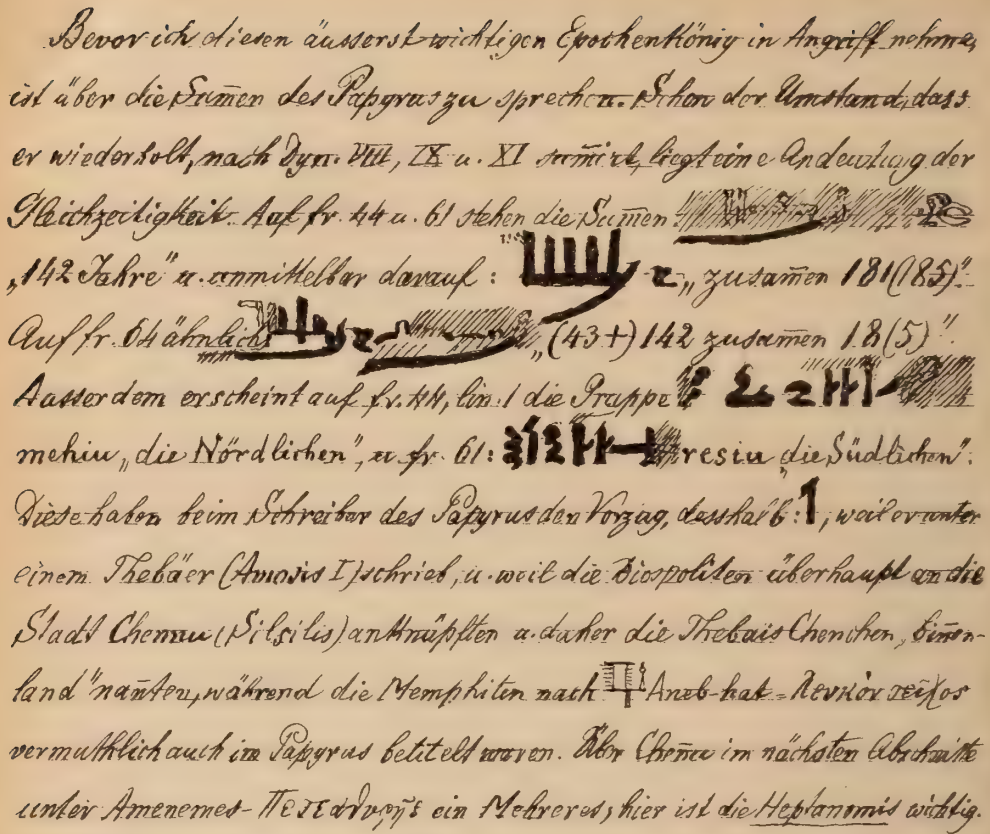 Bevor ich diesen äusserst wichtigen Epochenkönig in Angriff nehme,
ist über die Sum̄en des Papyrus zu sprechen. Schon der Umstand, dass
er wiederholt, nach Dyn. VIII, IX u. XI sum̄irt, liegt eine Andeutung der
Gleichzeitigkeit. Auf fr. 44 u. 61 stehen die Sum̄en
„142 Jahre" u. unmittelbar darauf : „zusam̄en 181(185)".
Auf fr. 64 ähnlich „(43+) 142 zusam̄en 18(5)".
Ausserdem erscheint auf fr. 44, lin. 1 die Gruppe
mehiu „die Nördlichen", u. fr. 61: resiu „die Südlichen".
Diese haben beim Schreiber des Papyrus den Vorzug, desshalb: , weil er unter
einem Thebäer (Amosis I) schrieb, u. weil die Diospoliten überhaupt an die
Stadt Chennu (Silsilis) anknüpften u. daher die Thebais Chenchen „Bin̄en-
land" nan̄ten, während die Memphiten nach Aneb-hat = λευκὸν τεῖχος
vermuthlich auch im Papyrus betitelt waren. Über Chen̄u im nächsten Abschnitte
unter Amenemes- ein Mehreres; hier ist die Heptanomis wichtig.